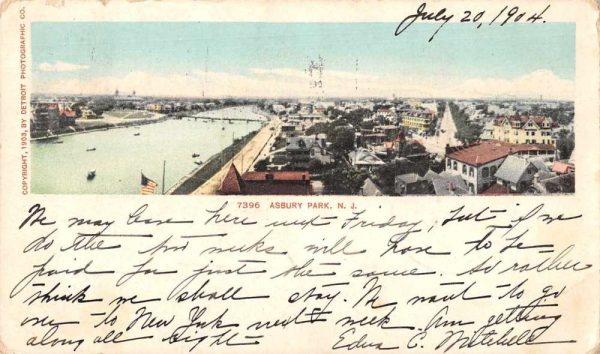 July 20, 1904.
COPYRIGHT, 1903, BY DETROIT PHOTOGRAPHIC CO.
7396 ASBURY PARK, N. J.
We may leave here next Friday, but if we
do the two weeks will have to be
paid for just the same. So rather
think we shall stay. We want to go
over to New York next week. Am getting
along all right. Edna C. Mitchell